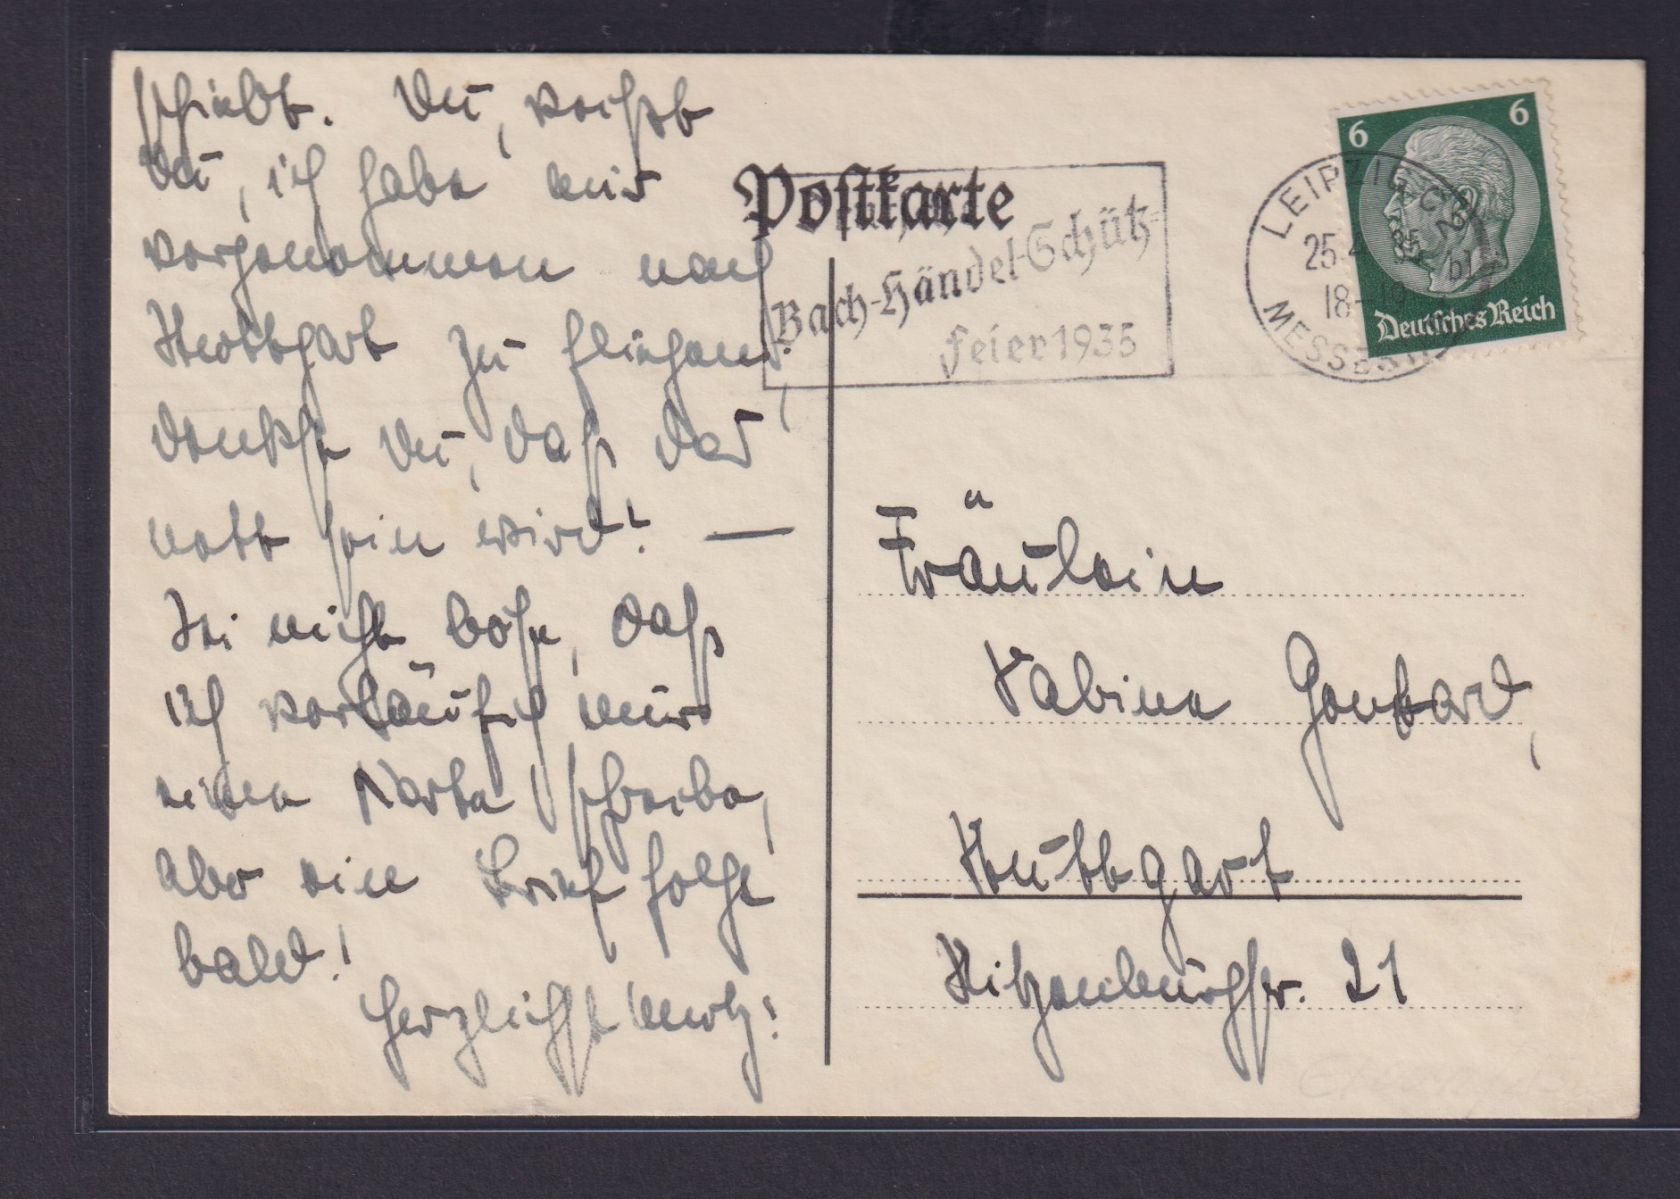 schiebt. Du, weißt
Du, ich habe mir
vorgenommen nach
Stuttgart zu fliegen,
denkst Du, daß das
nett sein wird! —
Sei nicht böse, daß
ich vorläufig nur
eine Karte schreibe,
aber ein Brief folgt
bald!
Herzlichst
Postkarte
Bach-Händel-Schütz-
Feier 1935
LEIPZIG C2
25.4.35
18-19
MESSESTADT
6 6
Deutsches Reich
Fräulein
Sabine
Stuttgart
Hitzenburgstr. 21